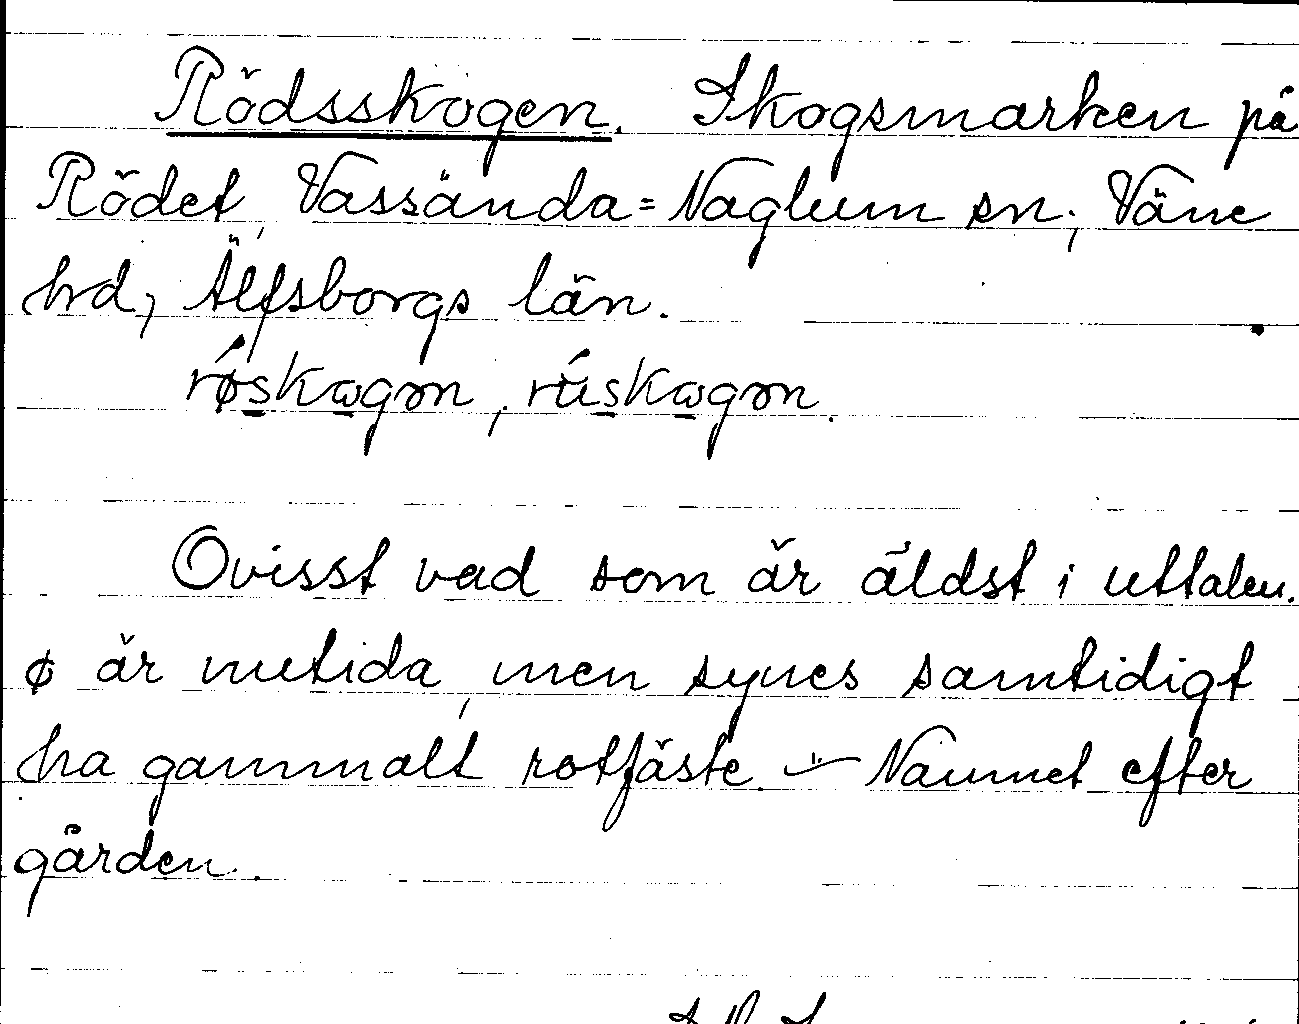 Rödsskogen. Skogsmarken på
Rödet, Vassända=Naglum sn, Väne
hd, Älfsborgs län.
røskɷgən, rúskɷgən.
Ovisst vad som är äldst i uttalen.
ø är nutida, men synes samtidigt
ha gammalt rotfäste. – Namnet efter
gården.